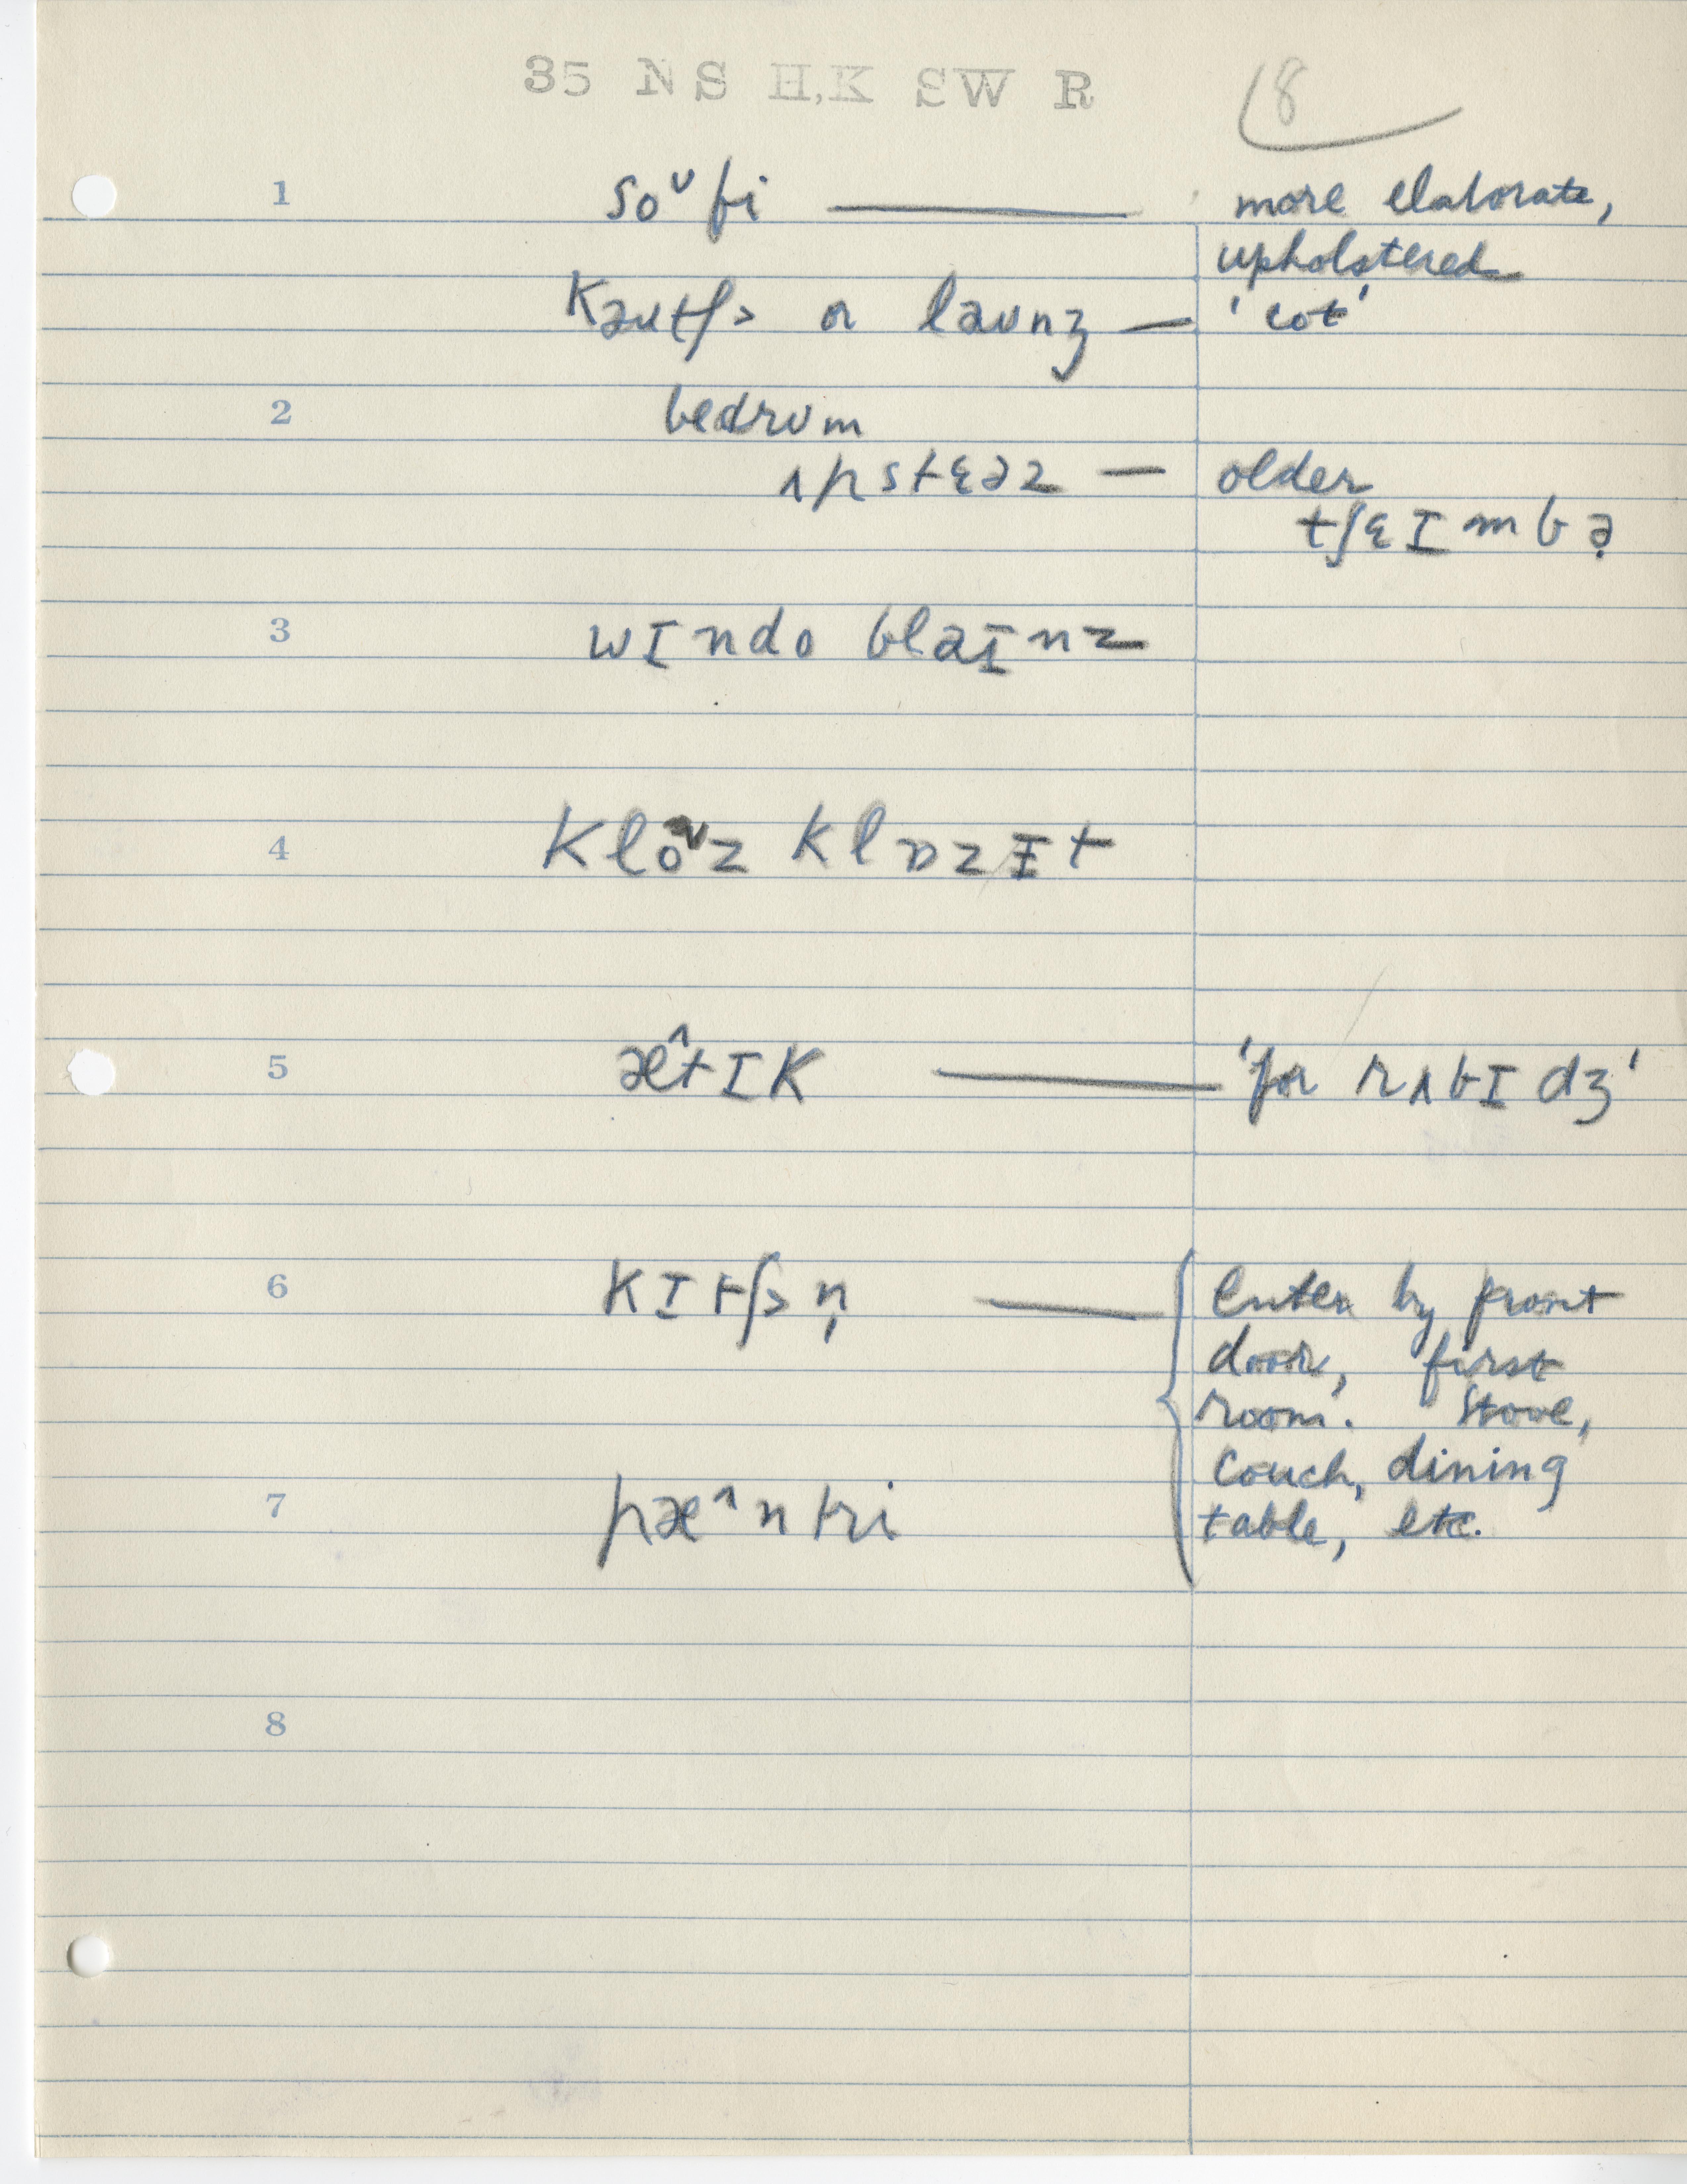 35 NS H,K SW R 8
1 soᵛfi — more elaborate,
upholstered
kəutʃ> or ləunʒ — 'cot'
2 bedrᴜm
ʌpstɛəz — older
tʃɛɪmbə̣
3 wɪndo bləɪnz
4 kloᵛz klɒzɪt
5 æ^tɪk — 'for rʌbɪdʒ'
6 kɪtʃ>n̩ — enter by front
door, first
room. Stove,
Couch, dining
7 pæ^ntri table, etc.
8